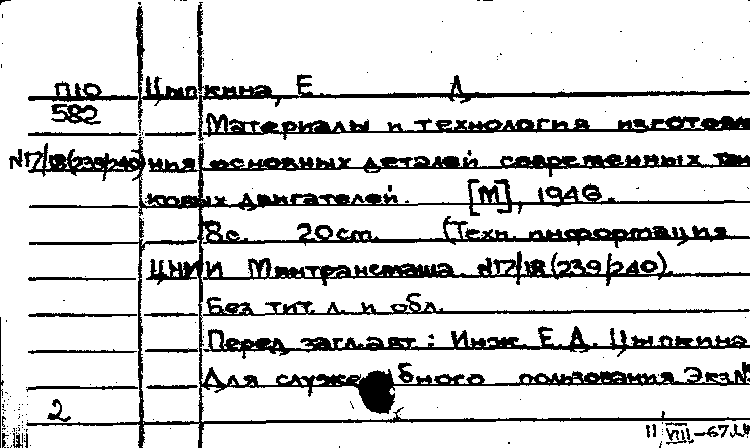 П10 Цыпкина, Е Д
582
Материалы и технология изготовле
№17/18(239/240) ния основных деталей современных тан
ковых двигателей. [М], 1946.
8с. 20cm. (Техн. информация
ЦНИИ Минтрансмаша №17/18 (239/240).
Без тит. л. и обл.
Перед загл. авт.: Инж. Е. Д. Цыпкина
Для служебного пользования Экз№
2
11 VIII-67